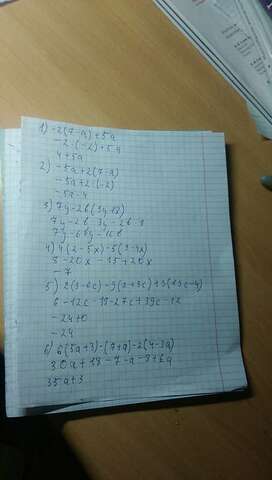 1) -2(7-a)+5a
-2·(-2)+5a
4+5a
2) -5a+2(7-a)
-5a+2·(-2)
-5a-4
3) 7y-2b(3y+8)
7y-2b·3y-2b·8
7y-6by-16b
4) 4(2-5x)-5(3-4x)
8-20x-15+20x
-7
5) 2(3-6c)-9(2+3c)+3(13c-4)
6-12c-18-27c+39c-12
-24+0
-24
6) 6(5a+3)-(7+a)-2(4-3a)
30a+18-7-a-8+6a
35a+3